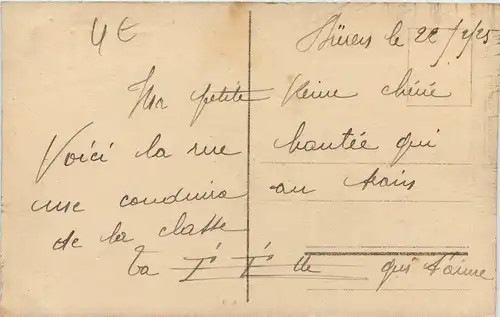 4 €
le 22/2/25
Ma petite Reine chérie
Voici la rue hantée qui
me conduira au train
de la classe
Ta qui t'aime